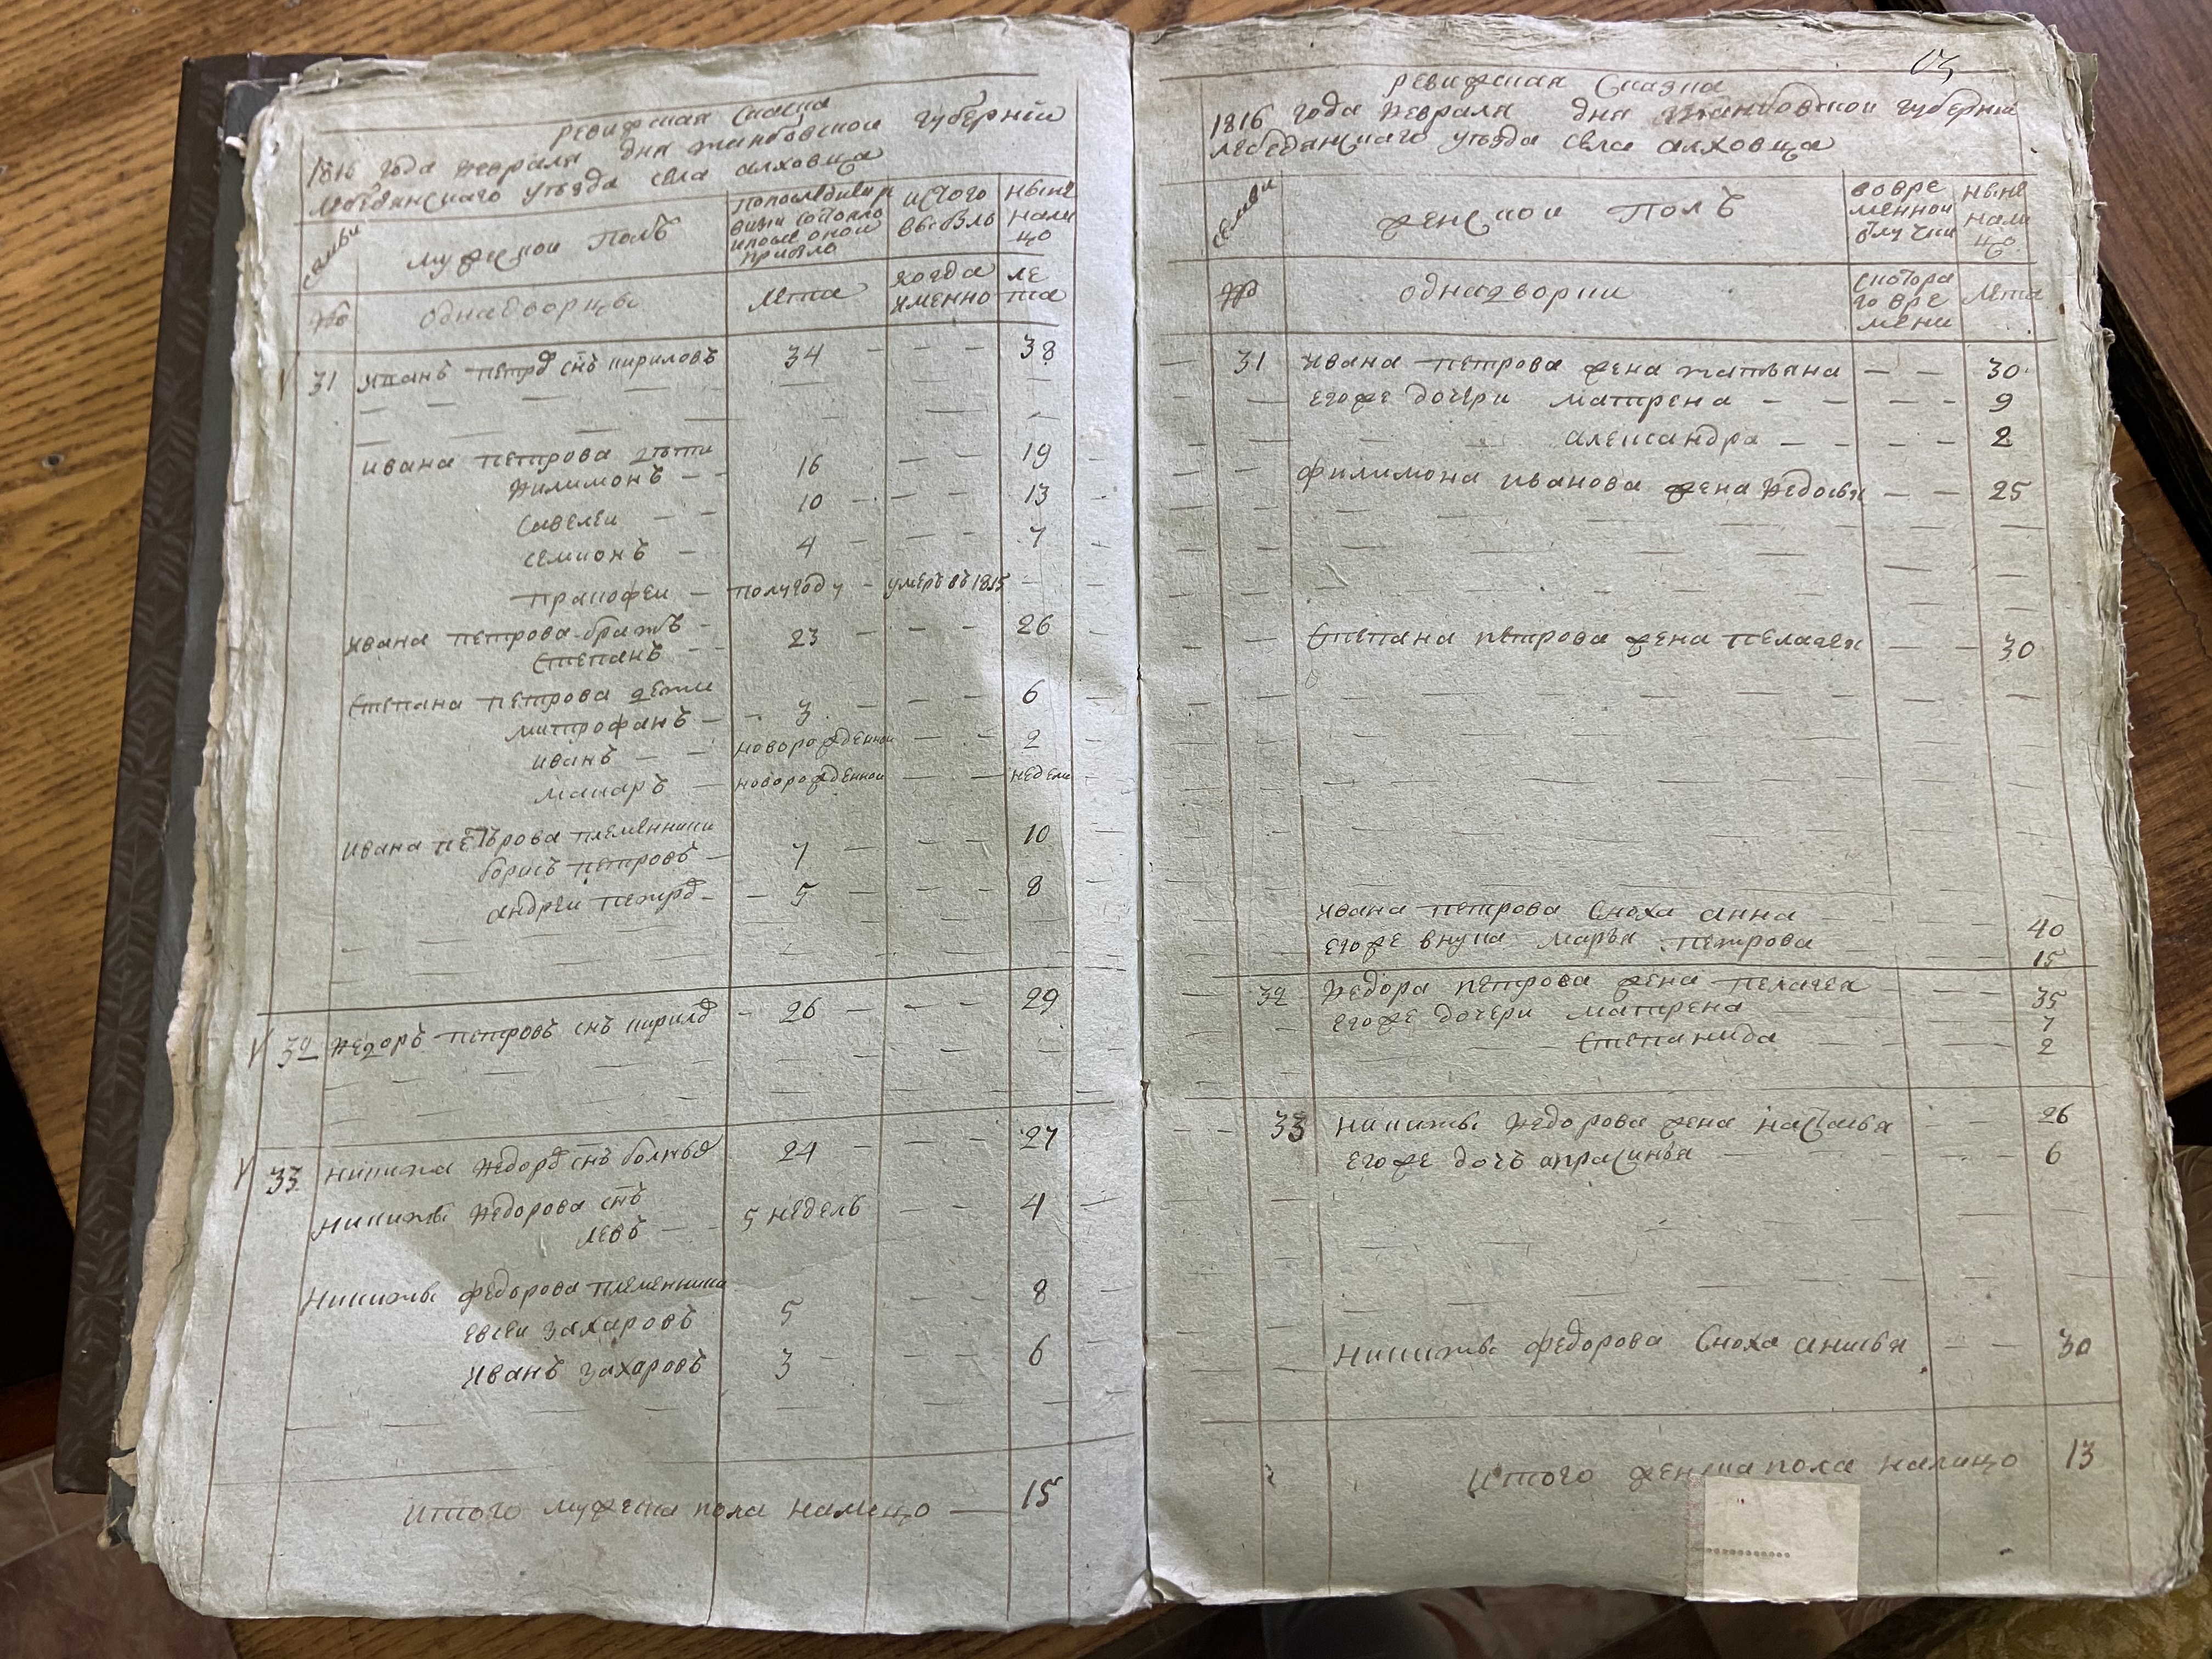 ревижская Сказка
1816 года февраля дня танбовской губернии
лебедянскаго уезда села алховца
Семьи
мужеской Полъ
попоследней ре
визии состояло
и после оной
прибыло
исчого
выбыло
ныне
нали
цо
№
однадворцы
лѣта
когда
именно
ле
та
31 Иванъ петров снъ кириловъ 34 - - - 38
ивана петрова дѣти
филимонъ - - 16 - - 19
Савелеи - - 10 - - - 13
семионъ - 4 - - - 7
пракофеи - полугоду - умеръ въ 1815 -
ивана петрова братъ -
Степанъ - - 23 - - - 26
Степана петрова дети
митрофанъ - - 3 - - - 6
иванъ - - новорожденной - - 2
макаръ - новорожденной - - недели
ивана петрова племянники
борисъ петровъ - 7 - - - 10
андреи петров - - 5 - - - 8
32 федоръ петровъ снъ кирилов - 26 - - 29
33 никита федоров снъ 24 - - - 27
никиты федорова снъ
левъ - - 5 недель - - 4
Никиты федорова племянники
евсеи захаровъ 5 - - 8
иванъ захаровъ 3 - - - 6
итого мужеска пола налицо — 15
ревижская Сказка
1816 года февраля дня танбовской губернии
лебедянскаго уезда села алховца
Семьи
женской Полъ
вовре
менной
отлучки
ныне
нали
цо
№
однадворки
скотора
го вре
мени
лѣта
31 Ивана петрова жена татьяна - - 30
егоже дочери матрена - - - - 9
александра - - - - 2
филимона иванова жена федосья - - 25
Степана петрова жена пелагея - - 30
Ивана петрова Сноха анна 40
егоже внука марья петрова 15
32 федора петрова жена пелагея 35
егоже дочери матрена 7
Степанида 2
33 никиты федорова жена настасья - - 26
егоже дочъ апраксинья - - - 6
никиты федорова Сноха анисья - - 30
Итого женска пола налицо 13